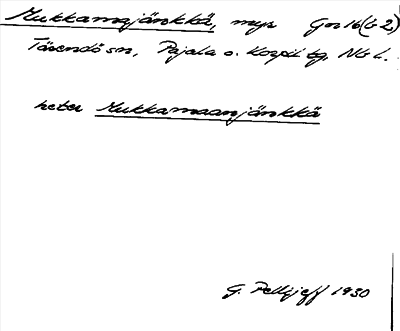 Mukkamajänkkä, myr Gn 16 (b 2)
Tärendö sn, Pajala o. Korpil tg, Nb l.
heter Mukkamaanjänkkä
G. Pellijeff 1930